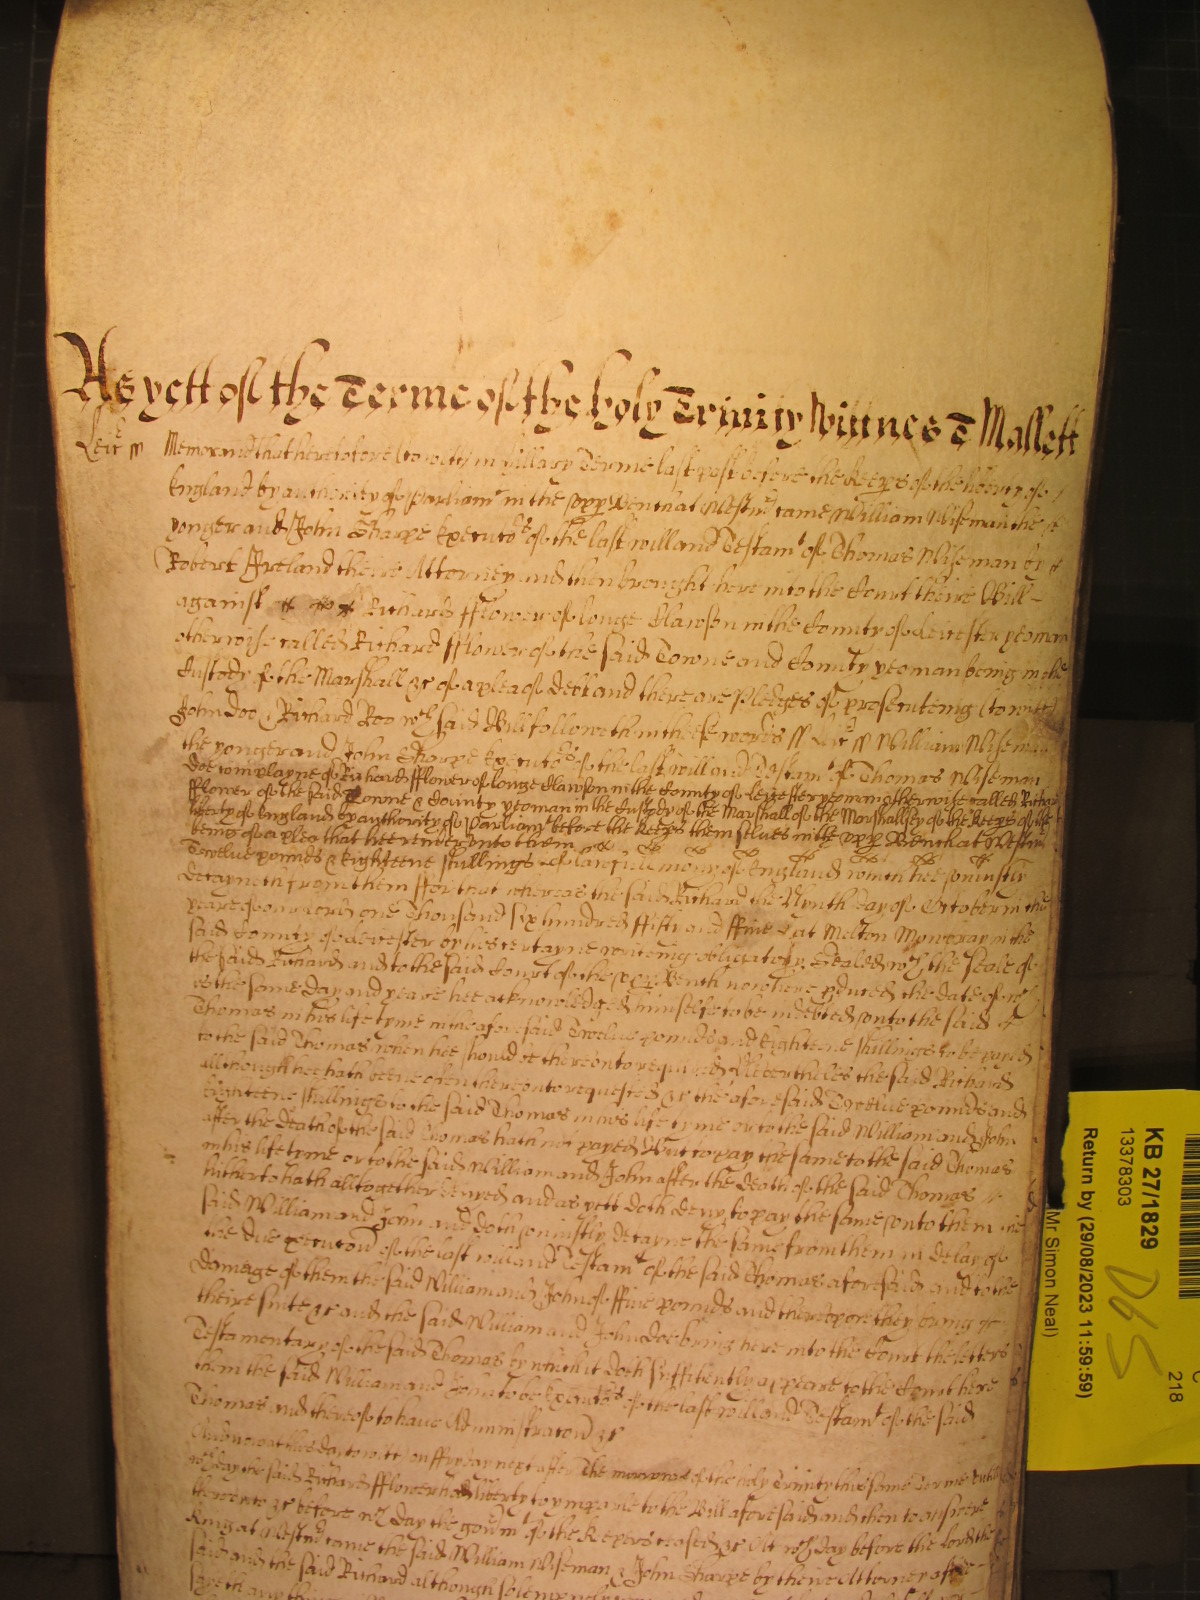 As yett of the Terme of the holy Trinity Wittnes T Mallett
Leic ss Memorand that heretofore (to witt) in hillary Terme last past before the Keeps of the liberty of
England by authority of Parliamt in the upp Bench at Westmr came William Wiseman the
yonger and John Sharpe Executors of the last will and Testamt of Thomas Wiseman by
Robert Ireland theire Attorney and then brought here into the Court theire Bill
against Richard fflower of longe Clawson in the County of Leicester yeoman
otherwise called Richard fflower of the said Towne and County yeoman being in the
Custody of the Marshall &c of a plea of debt and there are Pledges of prosecuteing (to witt)
John Doo & Richard Roo wch said Bill followeth in these words ss Leic ss William Wiseman
the yonger and John Sharpe Executors of the last will and Testamt of Thomas Wiseman
doe complayne of Richard fflower of longe Clawson in the County of Leicester yeoman otherwise called Richard
fflower of the said Towne & County yeoman in the Custody of the Marshall of the Marshallsey of the Keeps of the
liberty of England by authority of Parliamt before the Keeps them selves in the upp Bench at Westmr
being of a plea that hee render unto them
Twelve pounds & Eighteene shillings of lawfull mony of England which hee uniustly
detayneth from them ffor that whereas the said Richard the Nynth day of October in the
yeare of our Lord one Thousand six hundred ffifty and ffive att Melton Mowbray in the
said County of Leicester by his certayne writeing obligatory Sealed wth the Seale of
the said Richard and to the said Court of the upp Bench now here pduced the date of wch
is the same day and yeare hee acknowledged himselfe to be indebted unto the said
Thomas in his life tyme in the aforesaid Twelve pounds and Eighteene shillings to be payed
to the said Thomas when hee should be thereunto required Neverthelesse the said Richard
although hee hath beene often thereunto requested &c the aforesaid Twelve pounds and
Eighteene shillings to the said Thomas in his life tyme or to the said William and John
after the death of the said Thomas hath not payed But to pay the same to the said Thomas
in his life tyme or to the said William and John after the death of the said Thomas
hitherto hath alltogether denyed and as yett doth deny to pay the same unto them the
said William and John and doth uniustly detayne the same from them in delay of
the due execucon of the last will and Testamt of the said Thomas aforesaid and to the
damage of them the said William and John of ffive pounds and thereupon they bring
theire suite &c and the said William and John doe bring here into the Court the letters
Testamentary of the said Thomas by which it doth sufficiently appeare to the Court here
them the said William and John to be Executors of the last will and Testamt of the said
Thomas and thereof to have Administracon &c
And now at this day to witt on ffryday next after the morrow of the holy Trinity this same Terme untill
wch day the said Richard fflower had liberty to imparle to the Bill aforesaid and then to answere
thereunto &c before wch day the govermt of the Keepers ceased &c Att wch day before the lord the
King at Westmr came the said William Wiseman & John Sharpe by theire Attorney afore
said and the said Richard although solempnely
KB 27/1829
13378303
Return by (29/08/2023 11:59:59)
Mr Simon Neal)
218